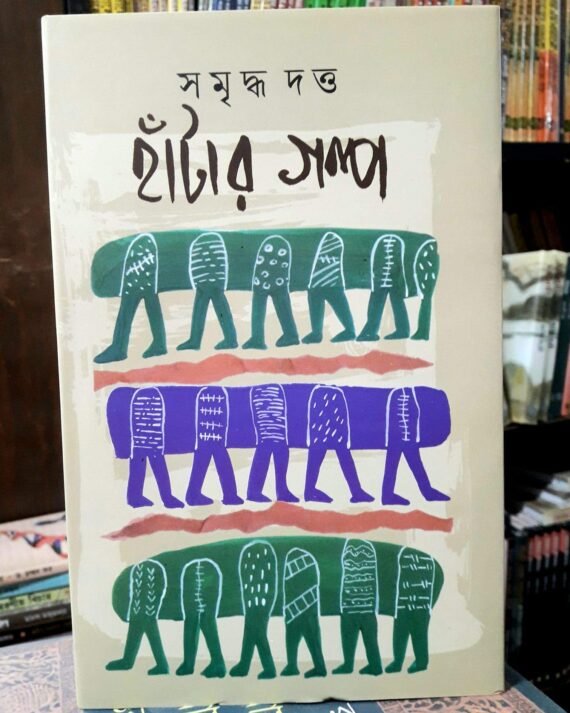 সমৃদ্ধ দত্ত
হাঁটার গল্প